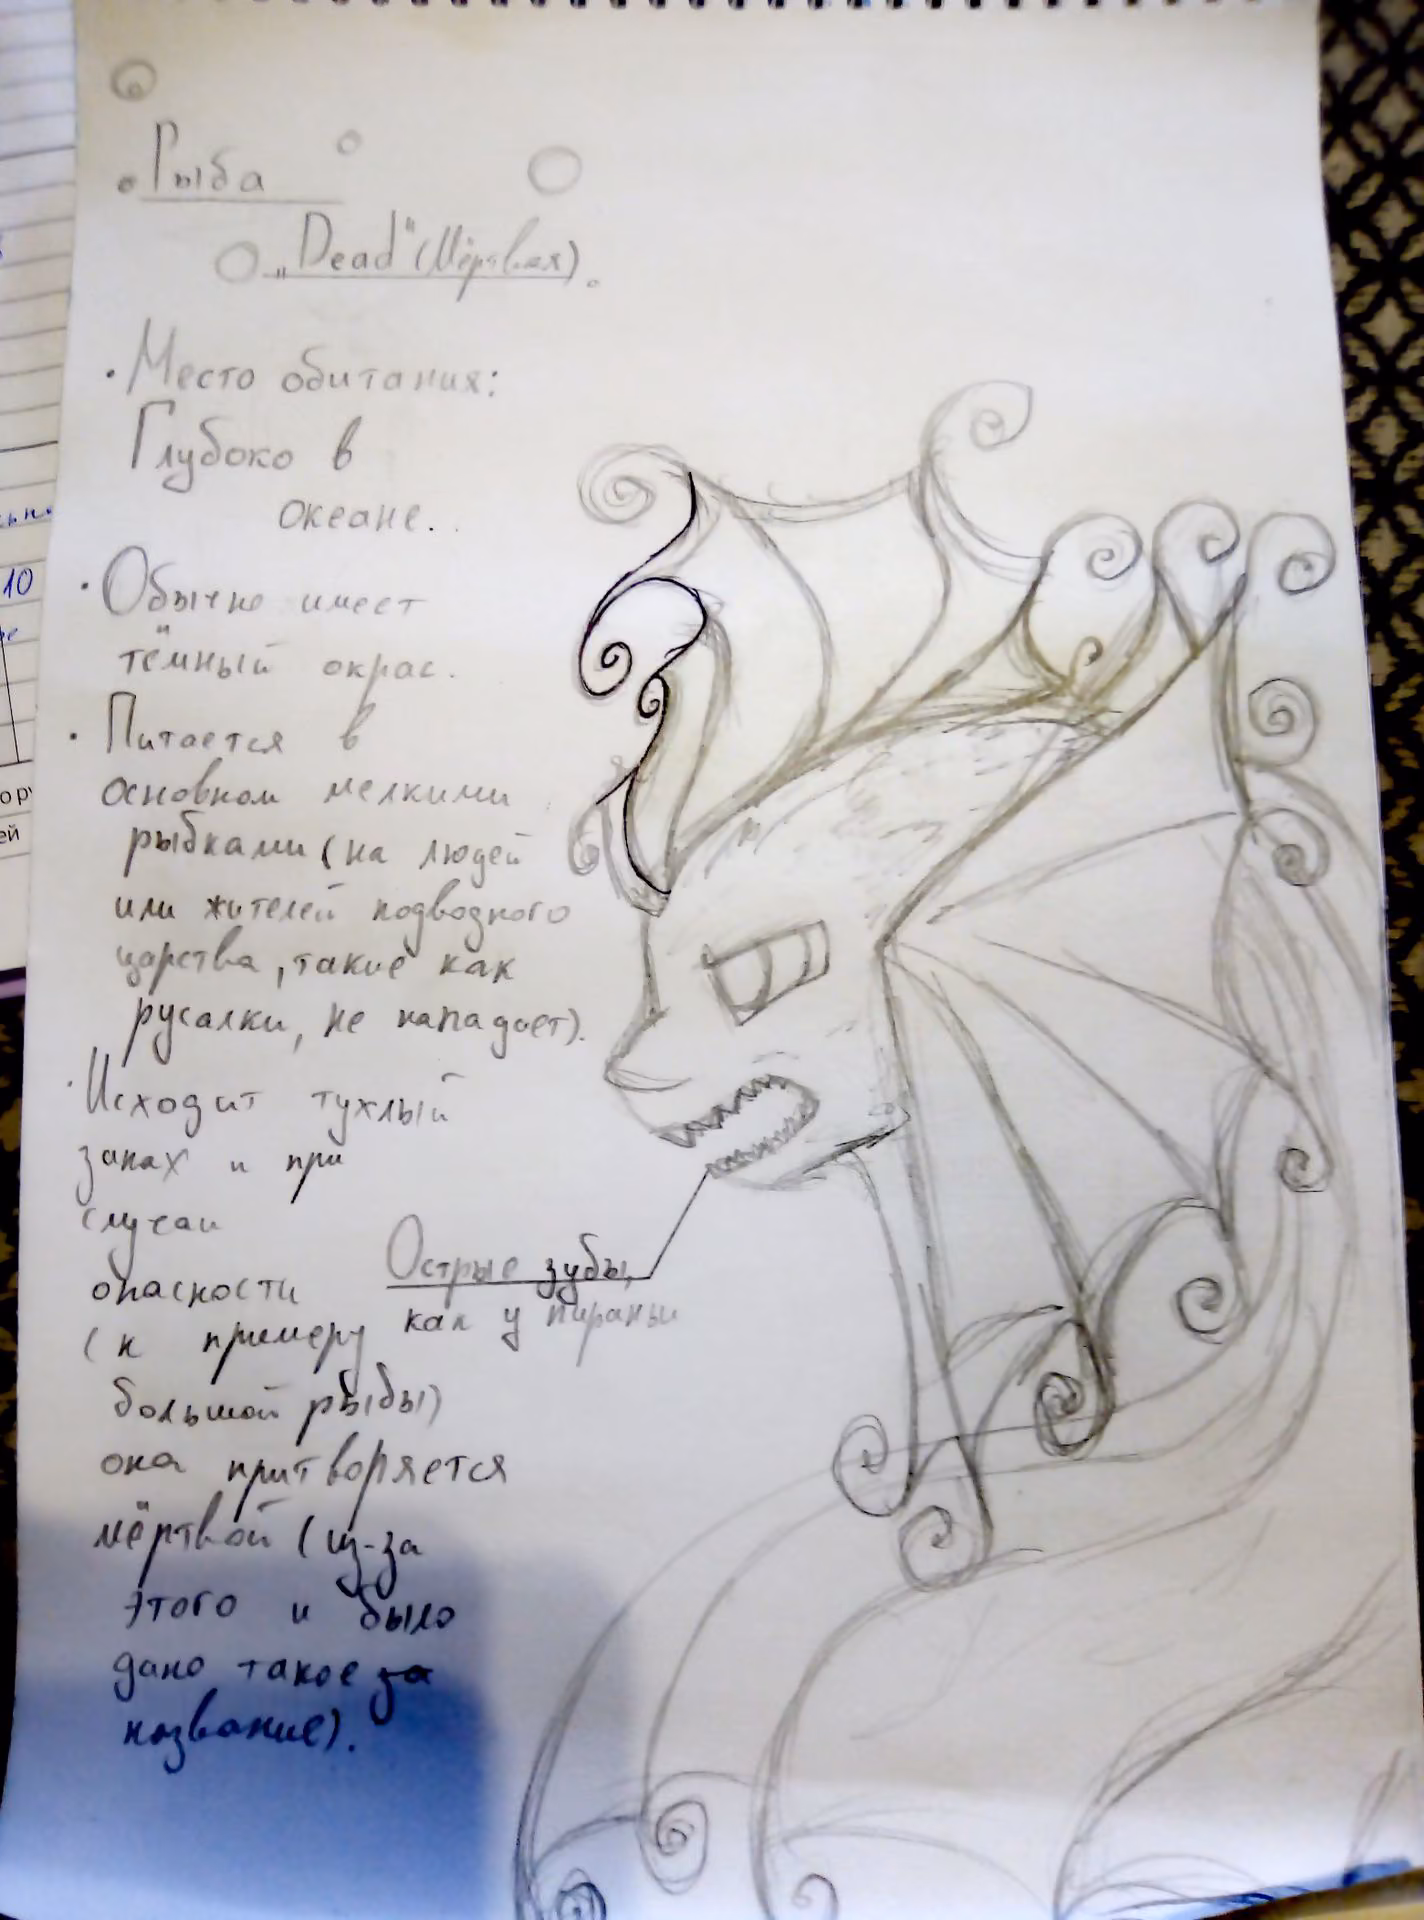 Рыба
„Dead“ (Мёртвая).
• Место обитания:
Глубоко в
океане.
• Обычно имеет
тёмный окрас.
• Питается в
основном мелкими
рыбками (на людей
или жителей подводного
царства, такие как
русалки, не нападает).
• Исходит тухлый
запах и при
случаи
опасности
(к примеру
большой рыбы)
она притворяется
мёртвой (из-за
этого и было
дано такое за
название).
Острые зубы,
как у пираньи
10
ей